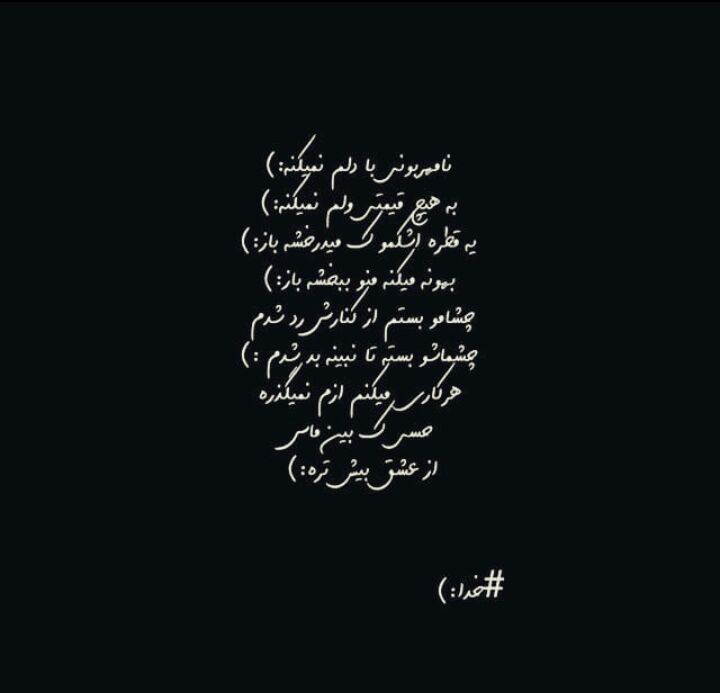 نامهربونی با دلم نمیکنه:)
به هیچ قیمتی ولم نمیکنه:)
یه قطره اشکمو ک میدرخشه باز:)
بهونه میکنه منو ببخشه باز:)
چشامو بستم از کنارش رد شدم
چشماشو بسته تا نبینه بد شدم :)
هرکاری میکنم ازم نمیگذره
حسی ک بین ماس
از عشق بیش تره:)
#خدا:)